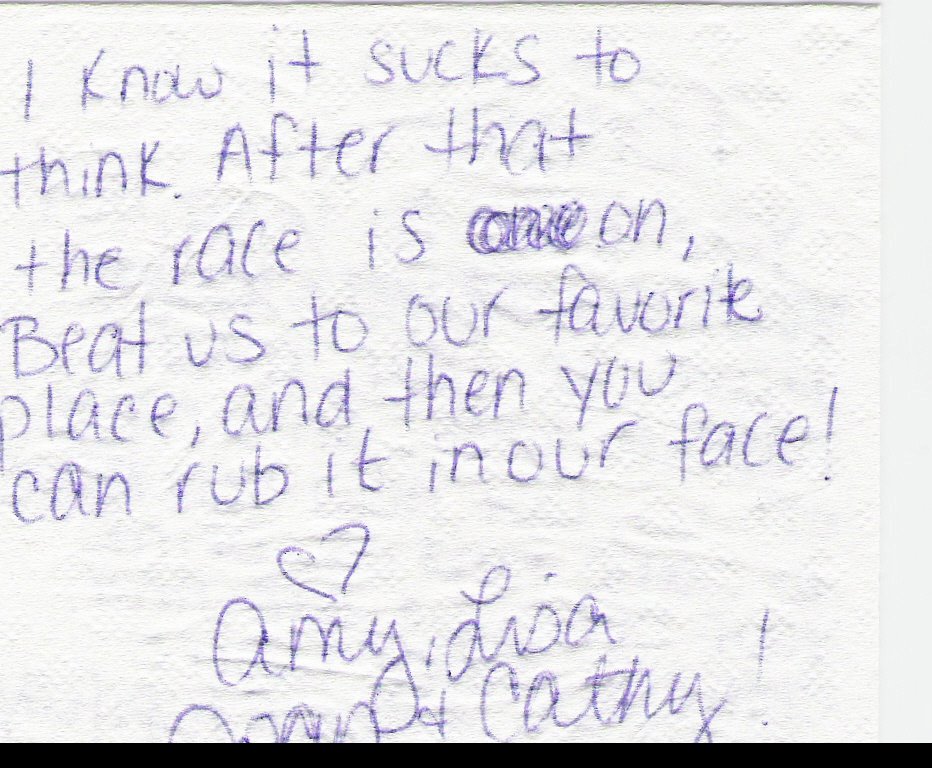 I know it sucks to
think. After that
the race is on,
Beat us to our favorite
place, and then you
can rub it in our face!
♡
Amy, Lisa
& Cathy!